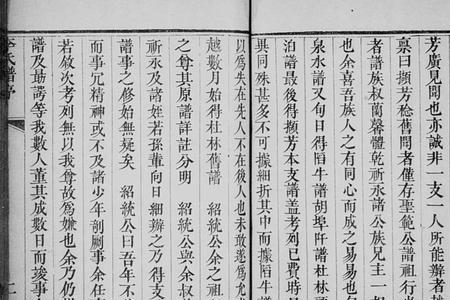 芳廣見聞也亦誠非一支一人所能辦者
稟曰擷芳稔舊聞者僅存聖範公譜祖行
者譜族叔蘭馨體乾祈永諸公族兄主一
也余喜吾族人之有同心而成之易易也
泉水譜又旬日得牛譜胡埠阡譜杜林
泊譜最後得擷芳本支譜蓋考列已費時
異同殊甚多不可據細折其中而據
以爲失在先人不在後人也未敢遂爲允
越數月始得杜林舊譜 紹統公余之祖
之尊其原譜詳註分明 紹統公與余叔
祈永及諸姪若孫輩向日細辦之乃得支
譜事之修始無疑矣 紹統公曰吾年不
而事冗精神或不及諸少年剞劂事余任
若敘次考列無以我尊故爲嫌也余乃仍
譜及勗諤等我數人董其成數日而竣事
氏譜序